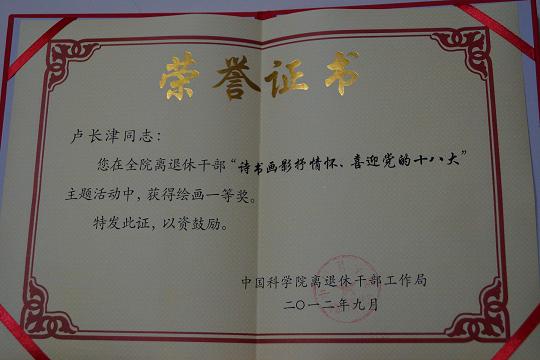 荣誉证书
卢长津同志：
您在全院离退休干部“诗书画影抒情怀、喜迎党的十八大”
主题活动中，获得绘画一等奖。
特发此证，以资鼓励。
中国科学院离退休干部工作局
二〇一二年九月